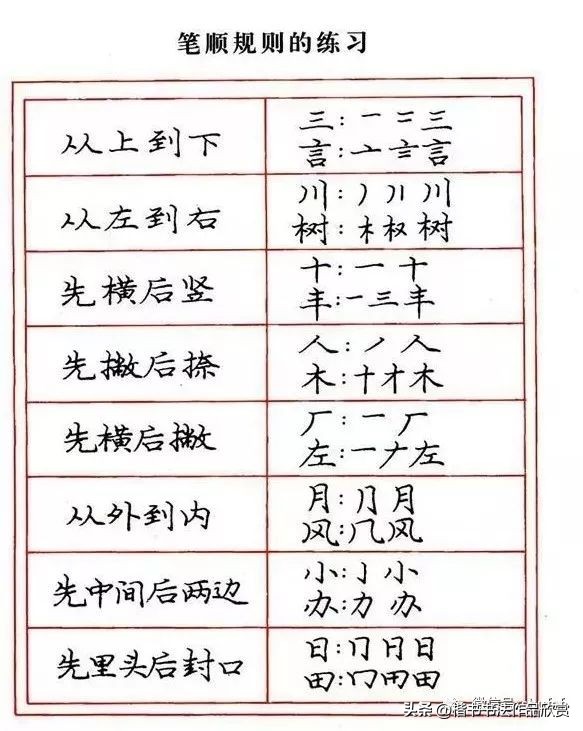 笔顺规则的练习
从上到下
三:一 二 三
言:亠 言
从左到右
川:丿 川
树:木 权 树
先横后竖
十:一 十
丰:一 三 丰
先撇后捺
人:丿 人
木:十 才 木
先横后撇
厂:一 厂
左:一 𠂇 左
从外到内
月:⺆ 月
风:几 风
先中间后两边
小:亅 小
办:力 办
先里头后封口
日:冂 日 日
田:冂 田
头条@楷书书法作品欣赏